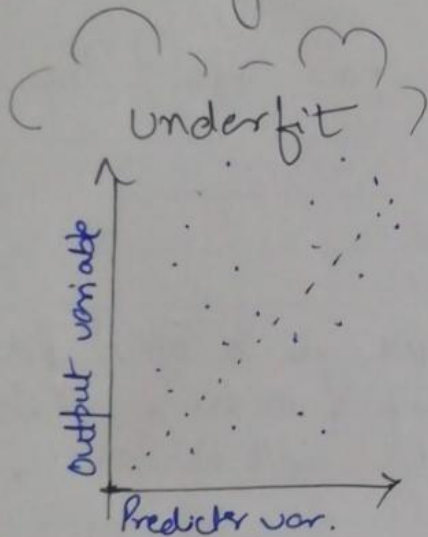 underfit
Output variable
Predicter var.